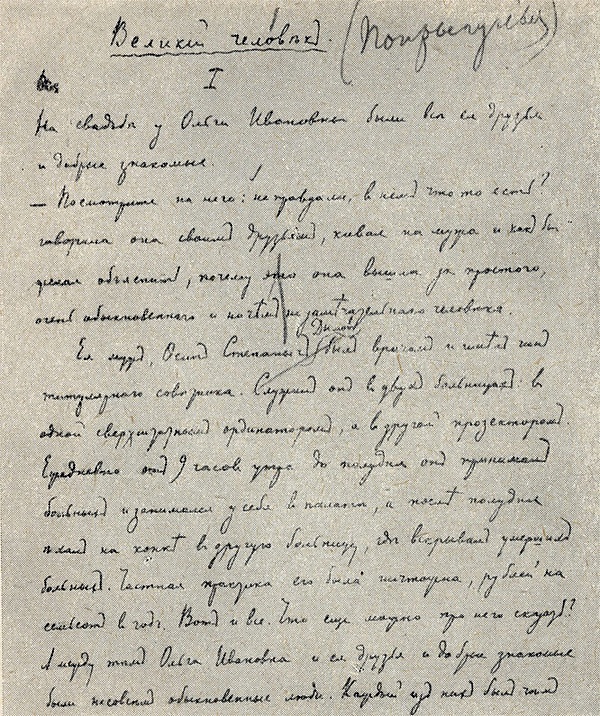 Великій человѣкъ. (Попрыгунья)
I
На свадьбѣ у Ольги Ивановны были всѣ ея друзья
и добрые знакомые.
— Посмотрите на него: не правда ли, в немъ что-то есть?
говорила она своимъ друзьямъ, кивая на мужа и какъ бы
желая объяснить, почему это она вышла за простого,
очень обыкновенного и ничѣмъ не замѣчательнаго человѣка.
Ея мужъ, Осипъ Степанычъ Дымовъ, былъ врачомъ и имѣлъ чинъ
титулярного совѣтника. Служилъ онъ в двухъ больницахъ: в
одной сверхштатнымъ ординаторомъ, а в другой прозекторомъ.
Ежедневно отъ 9 часовъ утра до полудня онъ принималъ
больныхъ и занимался у себя в палатѣ, а послѣ полудня
ѣхалъ на конкѣ в другую больницу, гдѣ вскрывалъ умершихъ
больныхъ. Частная практика его была ничтожна, рублей на
семьсотъ в годъ. Вотъ и все. Что еще можно про него сказать?
А между тѣмъ Ольга Ивановна и ея друзья и добрые знакомые
были не совсѣмъ обыкновенные люди. Каждый изъ нихъ былъ чѣмъ